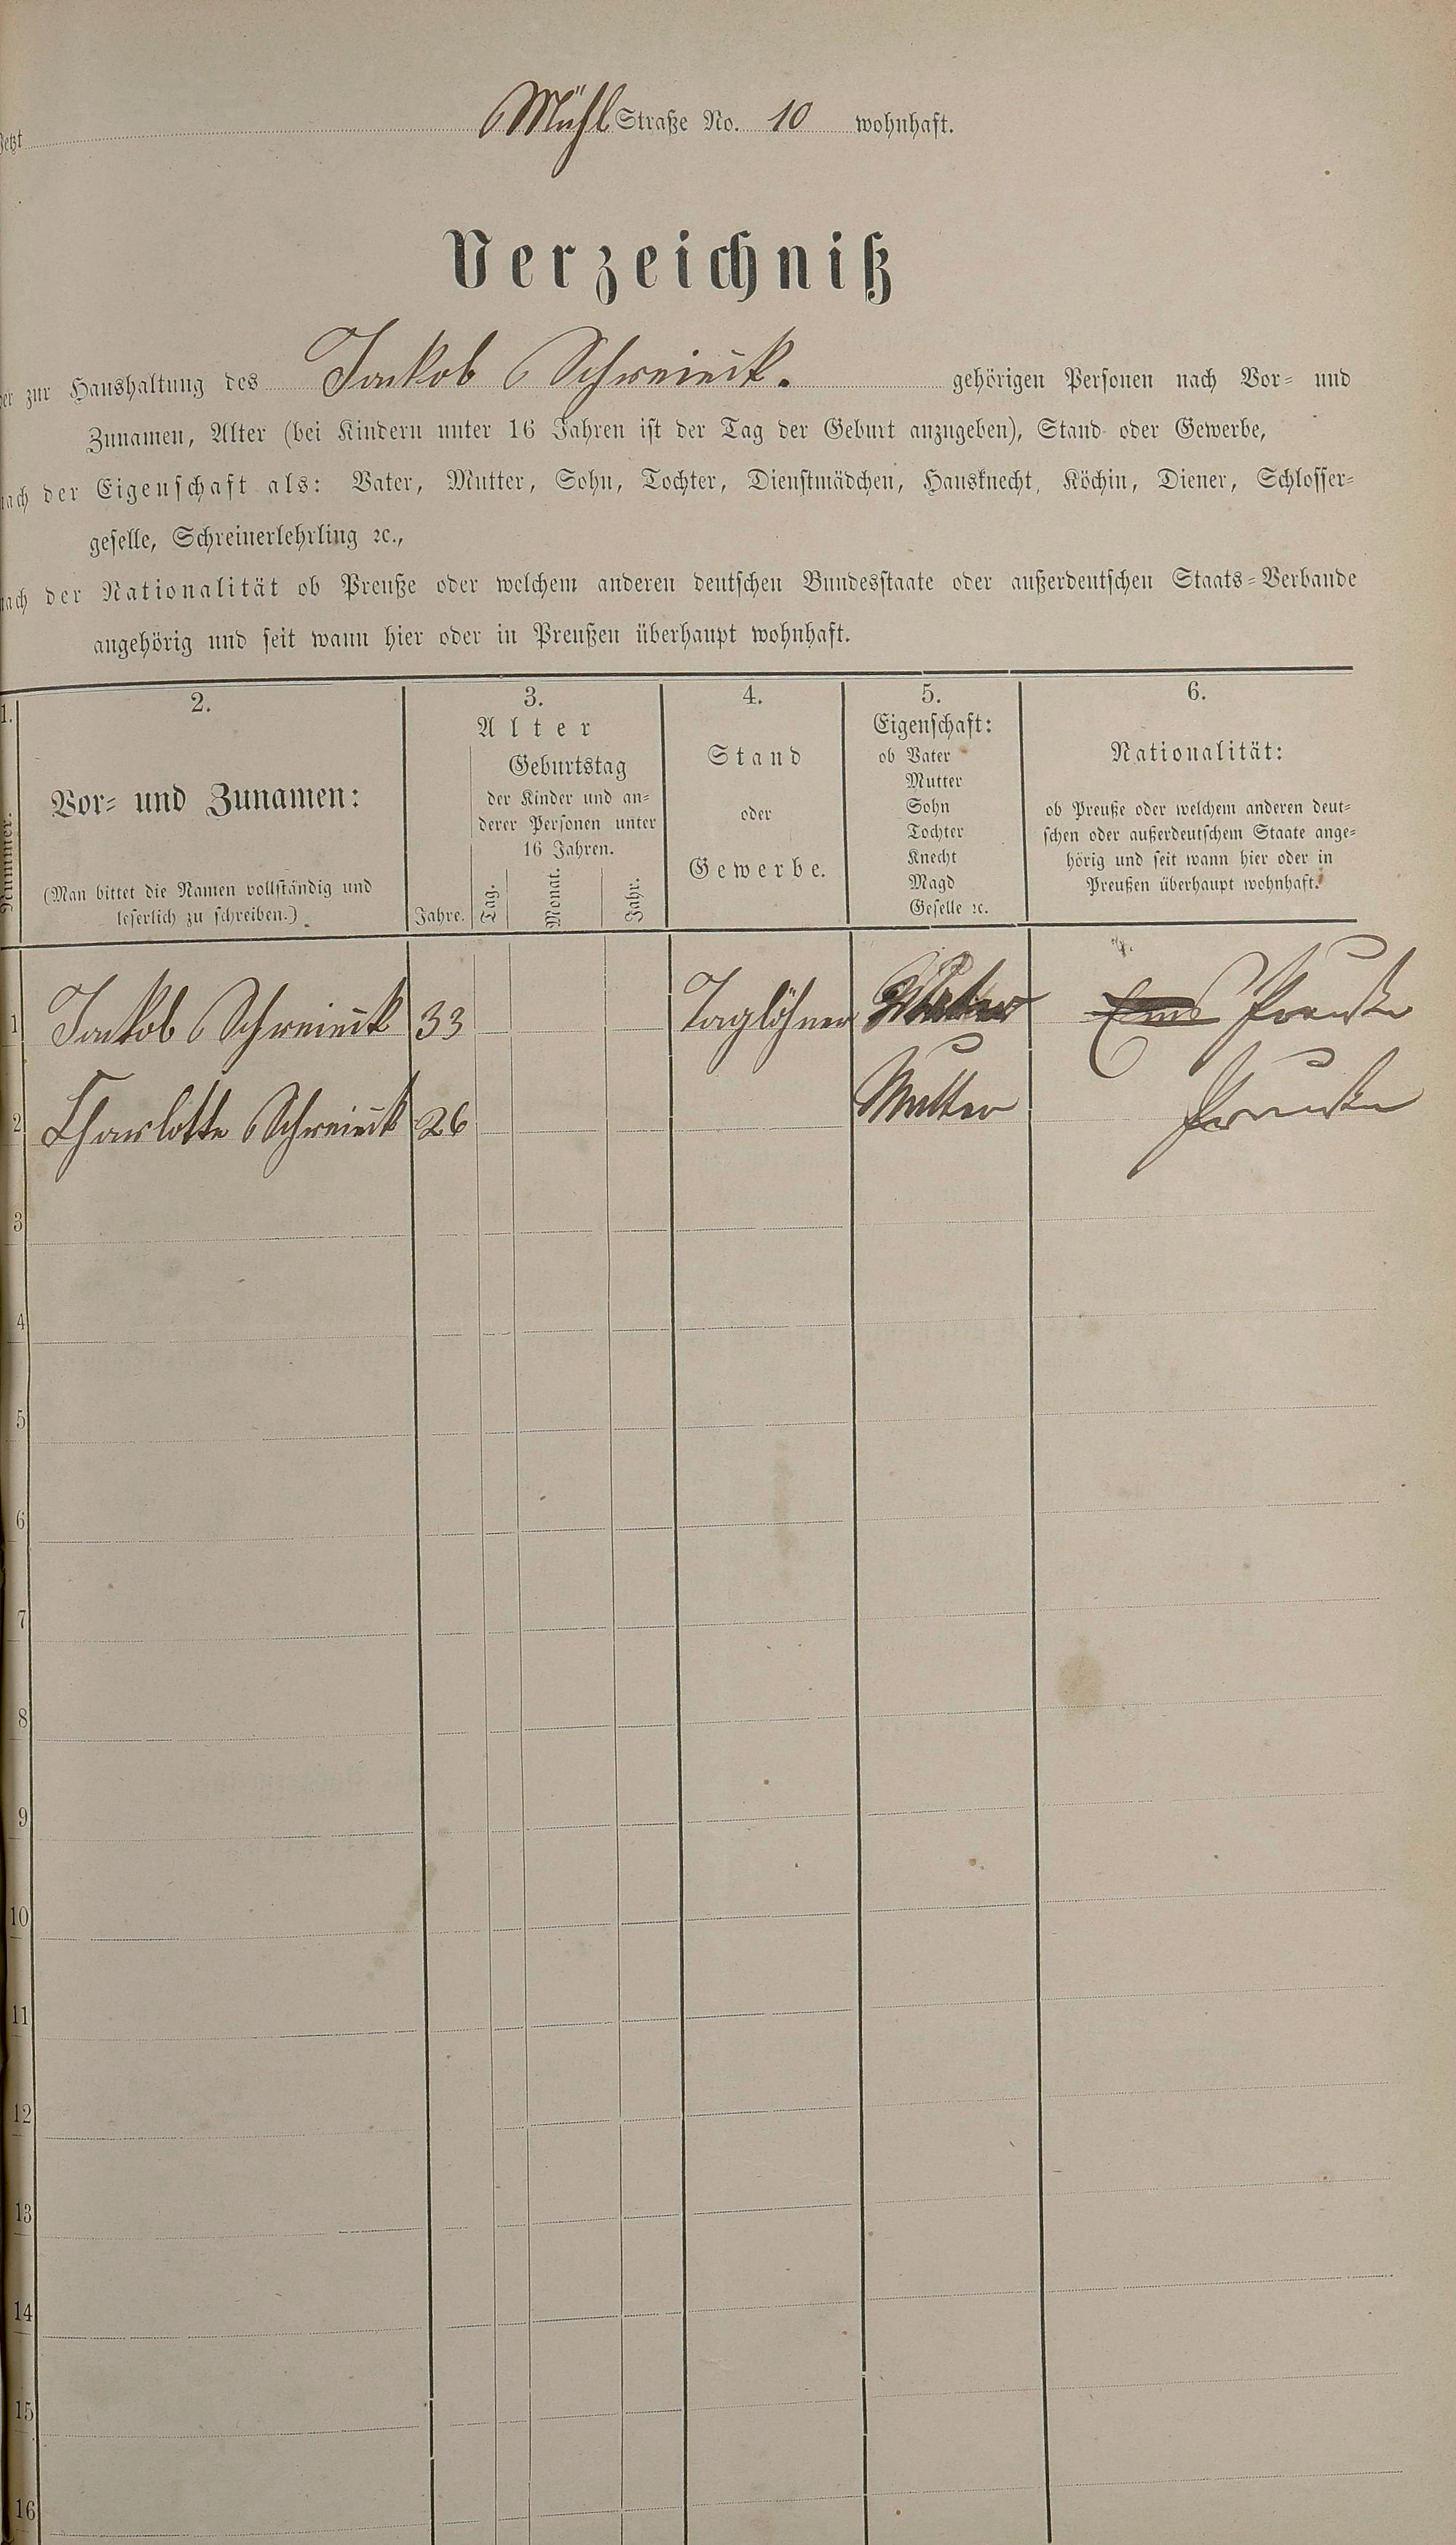 Jetzt Mühl Straße No. 10 wohnhaft.
Verzeichniß
der zur Haushaltung des Jakob gehörigen Personen nach Vor- und
Zunamen, Alter (bei Kindern unter 16 Jahren ist der Tag der Geburt anzugeben), Stand oder Gewerbe,
nach der Eigenschaft als: Vater, Mutter, Sohn, Tochter, Dienstmädchen, Hausknecht, Köchin, Diener, Schlosser-
geselle, Schreinerlehrling ꝛc.,
nach der Nationalität ob Preuße oder welchem anderen deutschen Bundesstaate oder außerdeutschen Staats-Verbande
angehörig und seit wann hier oder in Preußen überhaupt wohnhaft.
1.
Nummer.
2.
Vor- und Zunamen:
(Man bittet die Namen vollständig und
leserlich zu schreiben.)
3.
Alter
Jahre.
Geburtstag
der Kinder und an-
derer Personen unter
16 Jahren.
Tag.
Monat.
Jahr.
4.
Stand
oder
Gewerbe.
5.
Eigenschaft:
ob Vater
Mutter
Sohn
Tochter
Knecht
Magd
Geselle ꝛc.
6.
Nationalität:
ob Preuße oder welchem anderen deut-
schen oder außerdeutschem Staate ange-
hörig und seit wann hier oder in
Preußen überhaupt wohnhaft.
1 Jakob 33 Taglöhner Vater Preuße
2 Charlotte 26 Mutter Preuße
3
4
5
6
7
8
9
10
11
12
13
14
15
16